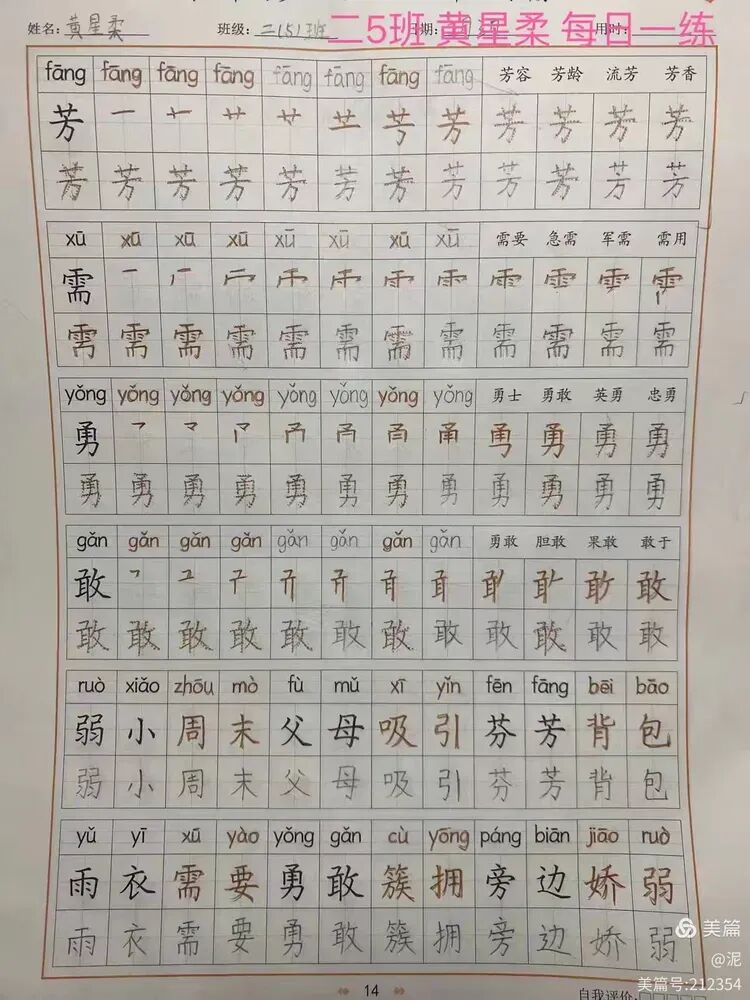 姓名: 黄星柔 班级: 二(5)班 日期: 用时:
二5班 黄星柔 每日一练
fāng fāng fāng fāng fāng fāng fāng fāng 芳容 芳龄 流芳 芳香
芳 芳 芳 芳 芳 芳 芳
芳 芳 芳 芳 芳 芳 芳 芳 芳 芳 芳 芳
xū xū xū xū xū xū xū xū 需要 急需 军需 需用
需
需 需 需 需 需 需 需 需 需 需 需 需
yǒng yǒng yǒng yǒng yǒng yǒng yǒng yǒng 勇士 勇敢 英勇 忠勇
勇 勇 勇 勇
勇 勇 勇 勇 勇 勇 勇 勇 勇 勇 勇 勇
gǎn gǎn gǎn gǎn gǎn gǎn gǎn gǎn 勇敢 胆敢 果敢 敢于
敢 敢
敢 敢 敢 敢 敢 敢 敢 敢 敢 敢 敢 敢
ruò xiǎo zhōu mò fù mǔ xī yǐn fēn fāng bēi bāo
弱 小 周 末 父 母 吸 引 芬 芳 背 包
弱 小 周 末 父 母 吸 引 芬 芳 背 包
yǔ yī xū yào yǒng gǎn cù yōng páng biān jiāo ruò
雨 衣 需 要 勇 敢 簇 拥 旁 边 娇 弱
雨 衣 需 要 勇 敢 簇 拥 旁 边 娇 弱
14
自我评价:
美篇
@泥
美篇号:212354